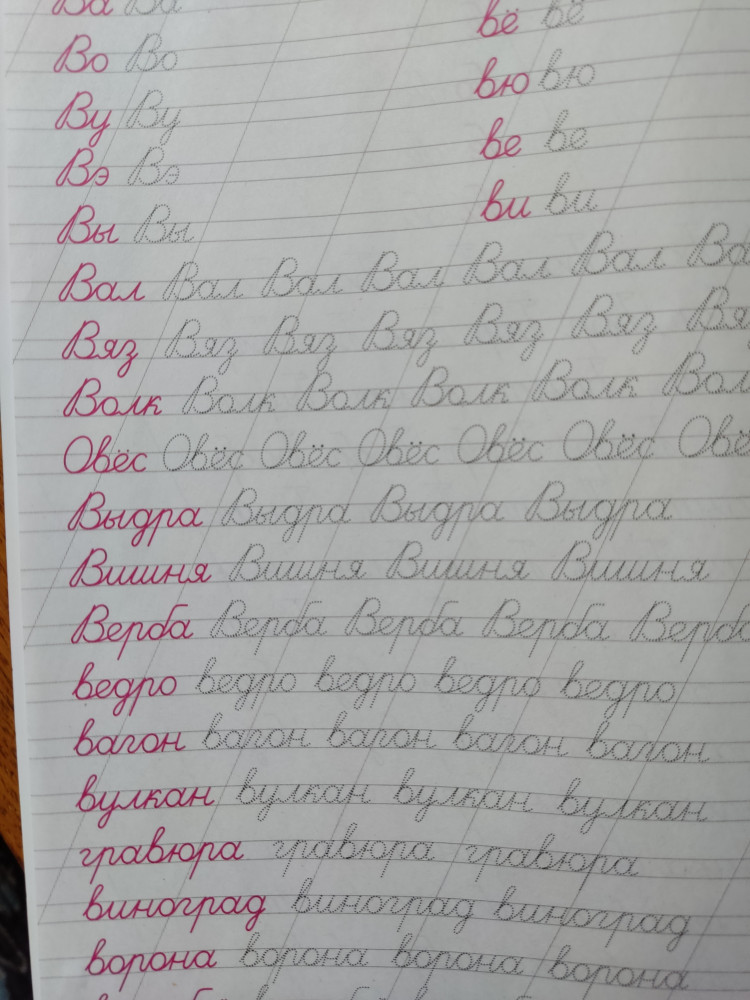 Ва Ва вё вё
Во Во вю вю
Ву Ву ве ве
Вэ Вэ ви ви
Вы Вы
Вал Вал Вал Вал Вал Вал Ва
Вяз Вяз Вяз Вяз Вяз Вяз Вяз
Волк Волк Волк Волк Волк Вол
Овёс Овёс Овёс Овёс Овёс Овёс Овё
Выдра Выдра Выдра Выдра
Вишня Вишня Вишня Вишня
Верба Верба Верба Верба Верба
ведро ведро ведро ведро ведро
вагон вагон вагон вагон вагон
вулкан вулкан вулкан вулкан
гравюра гравюра гравюра
виноград виноград виноград
ворона ворона ворона ворона